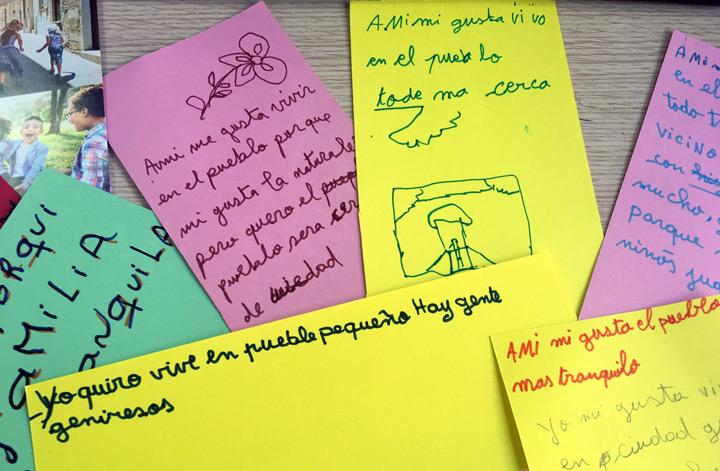 Ami me gusta vivir
en el pueblo porque
mi gusta la naturale
pero quero el
pueblo sera
de ciedad
AMi mi gusta vivo
en el pueb lo
tode ma cerca
AMi m
en el
todo t
vicino
con
mucho,
parque
niños jua
ORQUI
AMILIA
ANQUILA
Yo quiro vive en pueble pequeño Hay gente
geniresos
AMi mi gusta el pueblo
mas tranquilo
Yo mi gusta vi
en ciudad g